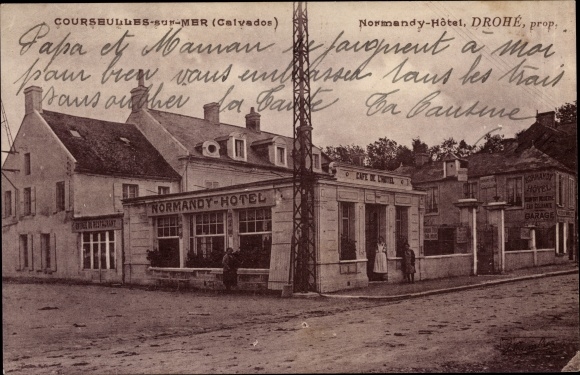 COURSEULLES-sur-MER (Calvados)
Normandy-Hôtel, DROHÉ, prop.
Papa et Maman se joignent à moi
pour bien vous embrasser tous les trois
sans oublier la Tante Ta Cousine
CAFE DE L'HOTEL
NORMANDY-HOTEL
HOTEL
GARAGE